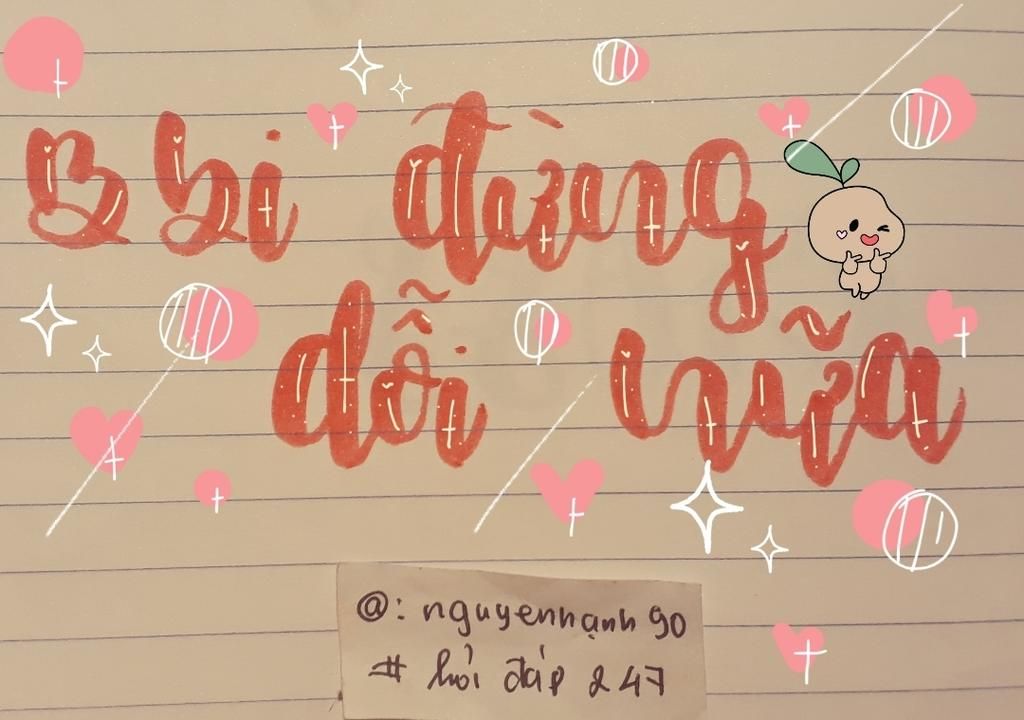 B bi đừng
dỗi nữa
@: nguyenhạnh90
# hỏi đáp 247